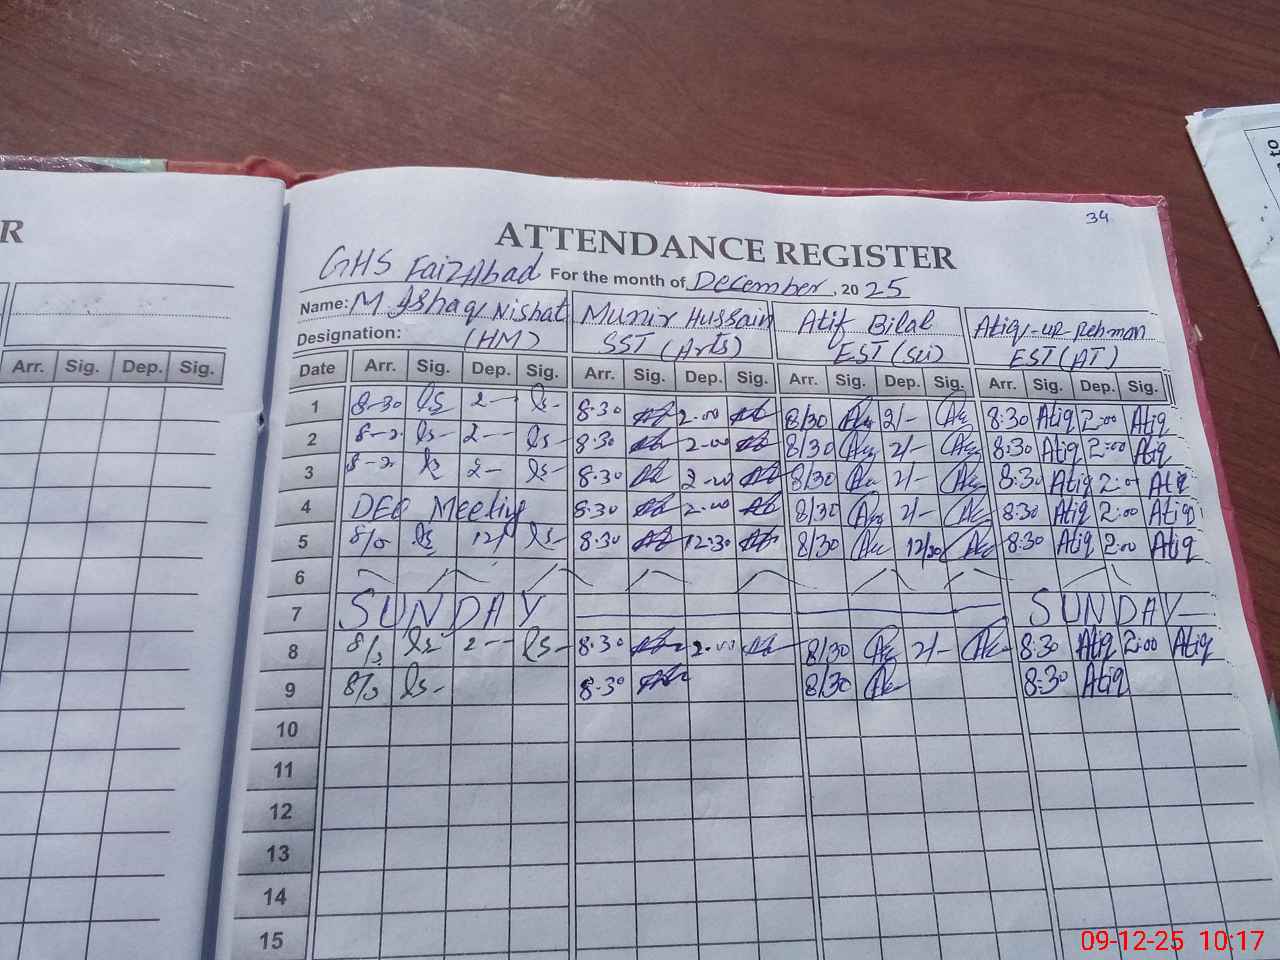 34
R
ATTENDANCE REGISTER
GHS FaizAbad For the month of December, 2025
Name: M. Ishaq Nishat Munir Hussain Atif Bilal Atiq-ur-Rehman
Designation: (HM) SST (Arts) EST (Sci) EST (AT)
Arr. Sig. Dep. Sig.
Date Arr. Sig. Dep. Sig. Arr. Sig. Dep. Sig. Arr. Sig. Dep. Sig. Arr. Sig. Dep. Sig.
1 8-30 2- 8.30 2.00 8/30 2/- 8:30 Atiq 2:00 Atiq
2 2- 8.30 2-00 8/30 2/- 8:30 Atiq 2:00 Atiq
3 2- 8.30 2-00 8/30 2/- 8:30 Atiq 2:00 Atiq
4 DEO Meeting 8.30 2.00 8/30 2/- 8:30 Atiq 2:00 Atiq
5 8.30 12.30 8/30 12/30 8:30 Atiq 2:00 Atiq
6
7 SUNDAY SUNDAY
8 2- 8.30 2.00 8/30 2/- 8:30 Atiq 2:00 Atiq
9 8.30 8/30 8:30 Atiq
10
11
12
13
14
15
to
09-12-25 10:17